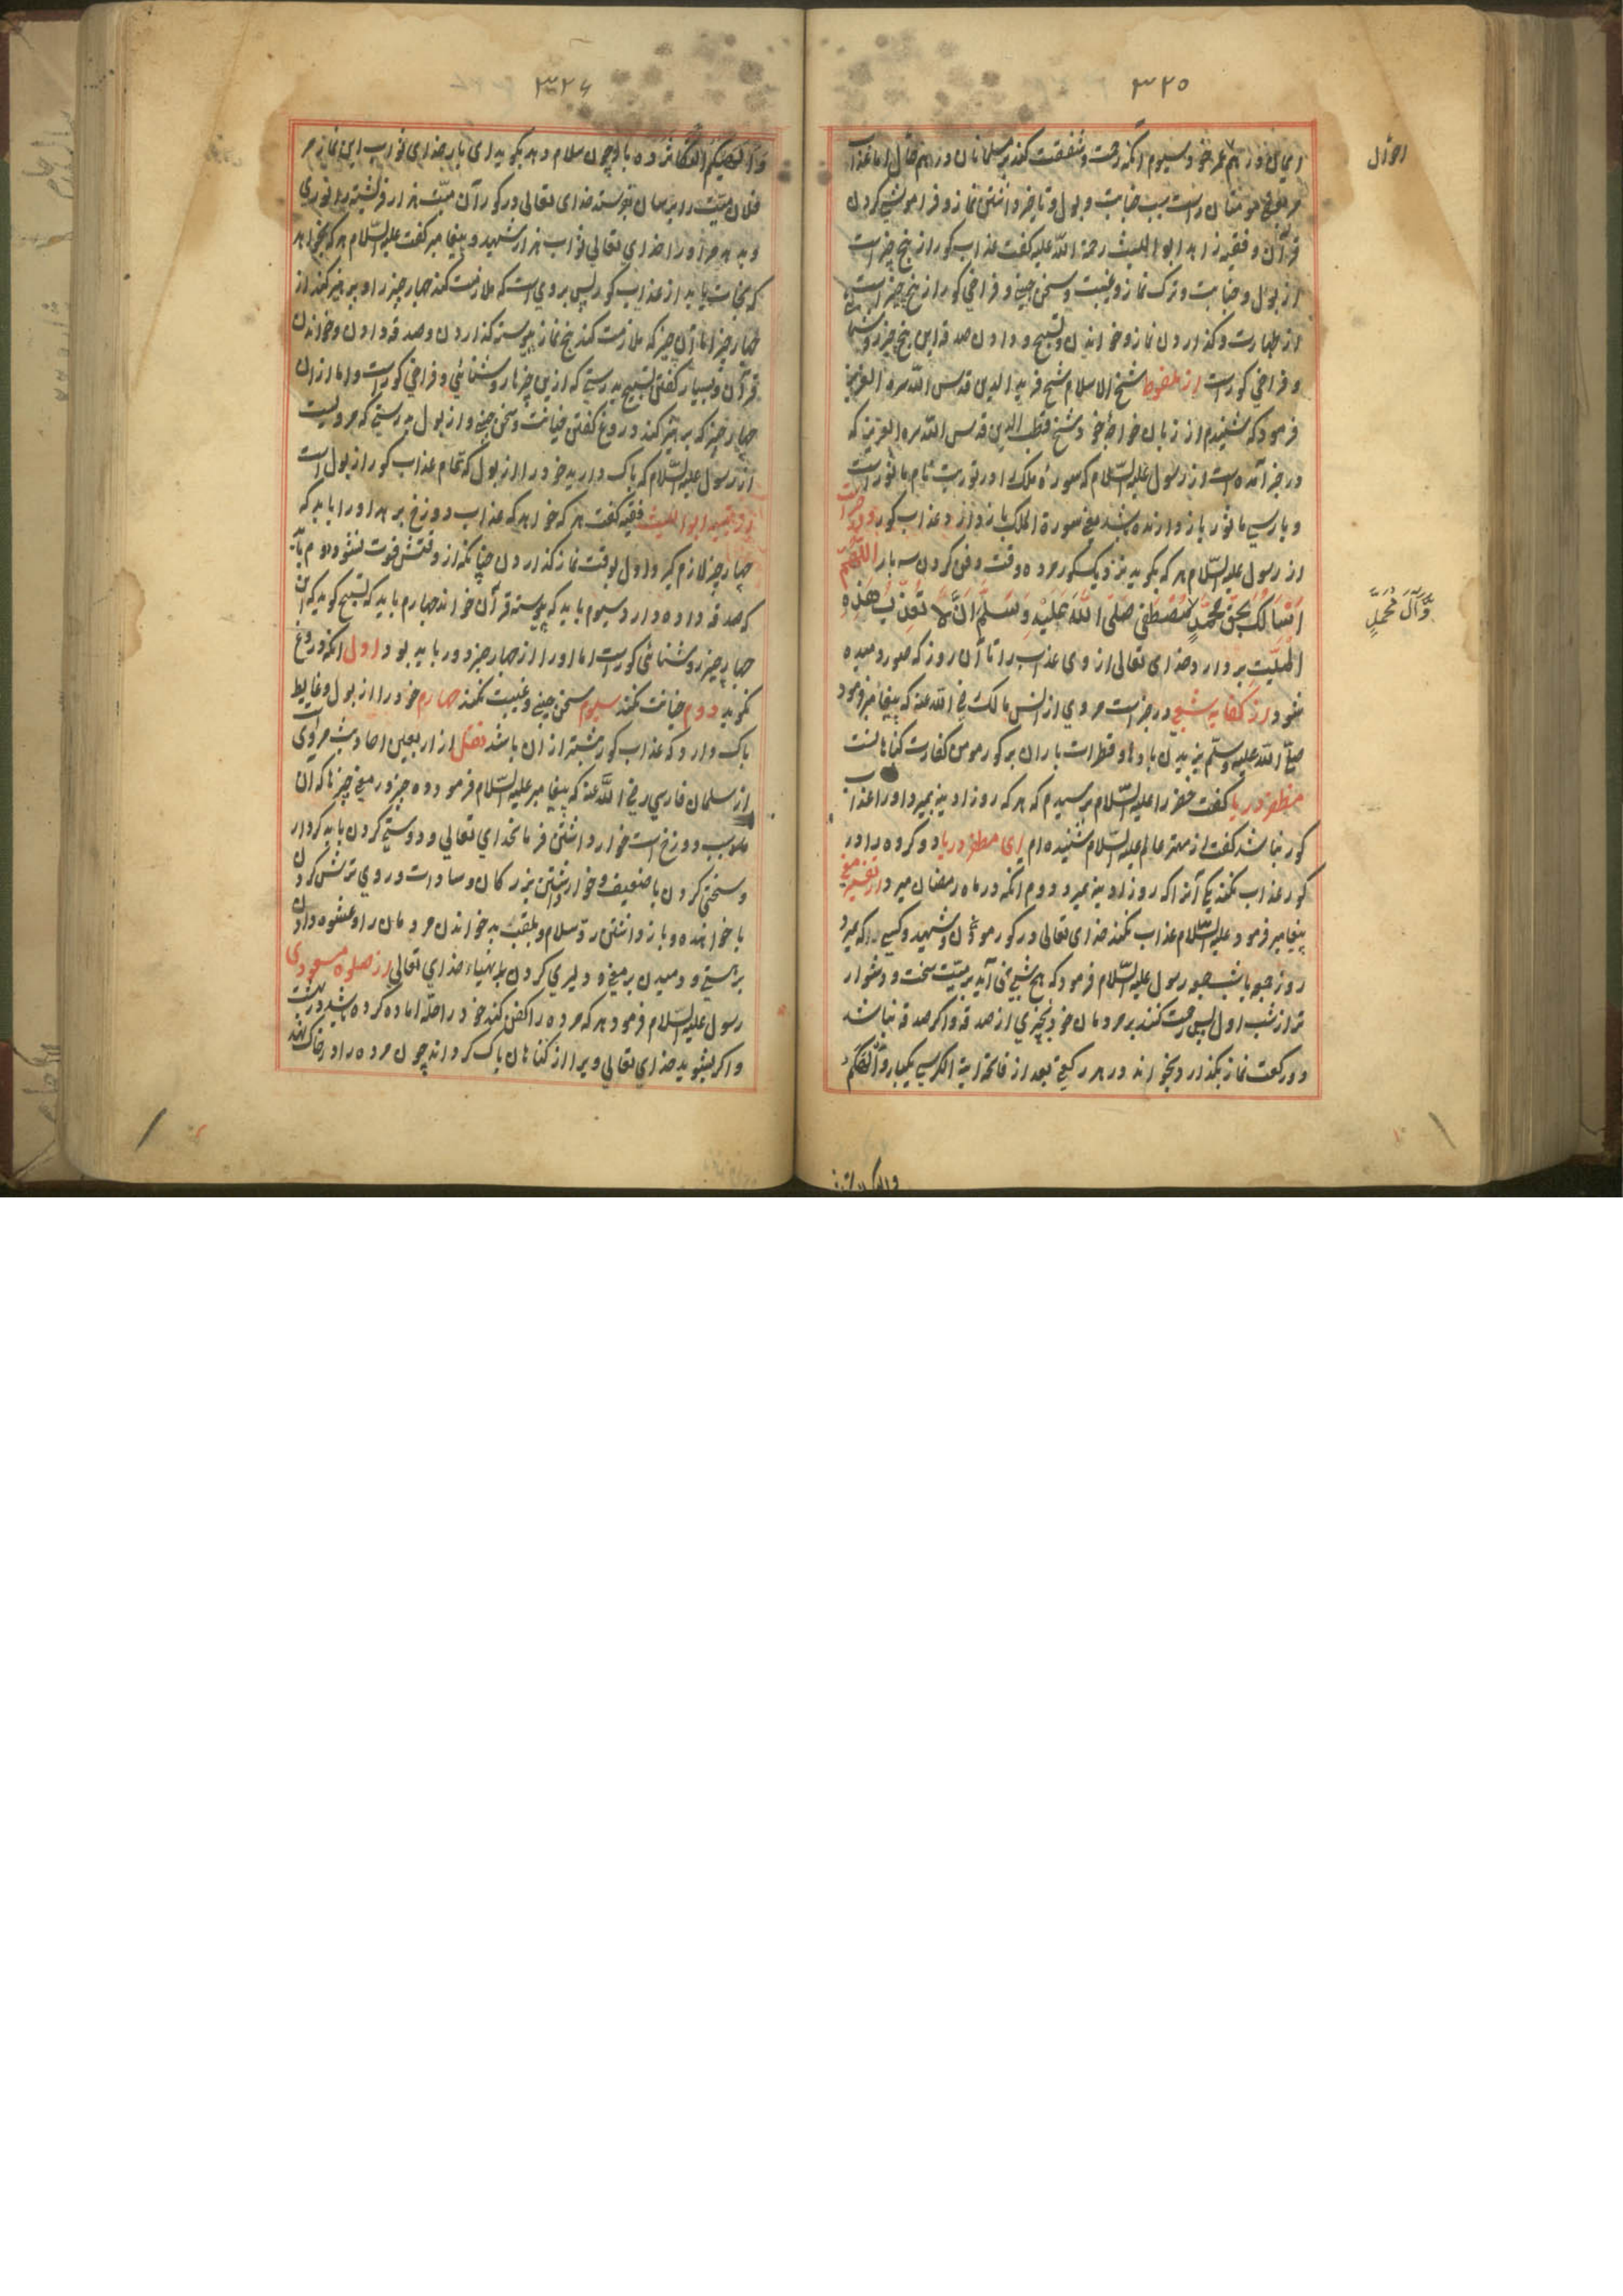 ۳۲۵
احوال
ایمان در همه عمر خود سیوم آنکه رحمت و شفقت کند بر مسلمانان در همه حال اما عذاب
مر بعضی مومنان راست سبب جنابت و بول و تاخیر داشتن نماز و فراموش کردن
قرآن و فقیه زاهد ابو اللیث رحمة الله علیه گفت عذاب کور از پنج چیز است
از بول و جنابت و ترک نماز و غیبت و سخن چینی و فراخی کور از پنج چیز است
از طهارت و گذاردن نماز و خواندن و تسبیح و دادن صدقه این پنج چیز روشنا
و فراخی کورست از ملفوظ شیخ الاسلام شیخ فرید الدین قدس الله سره العزیز
فرمود که شنیدم از زبان خواجه خود شیخ قطب الدین قدس الله سره العزیز که
در خبر آمده است از رسول علیه السلام که سورهٔ ملک را در توریت نام ماثور است
و پارسی ماثور باز دارنده باشد یعنی سورة الملک باز دارد عذاب کور
از رسول علیه السلام هر که بگوید نزدیک کور مرده وقت دفن کردن سه بار اللهم
انی اسالک بحق محمد مصطفی صلی الله علیه وسلم ان لا تعذب هذه
وآل محمد
المیت بردارد خدای تعالی از وی عذاب را تا آن روز که صور دمیده
شود از کفایه شعبی در خبر است مروی از انس مالک رضی الله عنه که پیغامبر فرمود
صلی الله علیه وسلم وزیدن بادها و قطرات باران بر کور مومن کفارت گناهانست
مظفر دریا گفت خضر را علیه السلام پرسیدم که هر که روز ادینه بمیرد او را عذاب
کور نباشد گفت از مهتر عالم علیه السلام شنیده ام ای مظفر دریا دو گروه را در
کور عذاب نکنند یکی آنرا که روز ادینه بمیرد دوم آنکه در ماه رمضان میرد از تفسیر مغنی
پیغامبر فرمود علیه السلام عذاب نکند خدای تعالی در کور موذن و شهید و کسی را که میرد
روز جمعه یا شب جمعه رسول علیه السلام فرمود که هیچ شبی نمی آید بر میت سخت و دشوار
تر از شب اول پس رحمت کنند بر مردمان خود بچیزی از صدقه و اگر صدقه نباشد
دو رکعت نماز بگذارد بخواند در هر رکعتی بعد از فاتحه آیة الکرسی یکبار و الهکم
۳۲۶
و الهیکم التکاثر ده بار چون سلام دهد بگوید ای بار خدای ثواب این نماز مر
فلان میت را برسان بفرستد خدای تعالی در کور آن میت هزار فرشته را نوری
و بدهد مر او را خدای تعالی ثواب هزار شهید و پیغامبر گفت علیه السلام هر که بخواهد
که نجات یابد از عذاب کور پس بر وی است که ملازمت کند چهار چیز را و پرهیز کند از
چهار چیز اما آن چیز که ملازمت کند پنج نماز پیوسته گذاردن و صدقه دادن و خواندن
قرآن و بسیار گفتن تسبیح بدرستی که ازین چیزها روشنائی و فراخی کورست و اما از آن
چهار چیز که پرهیز کند دروغ گفتن خیانت و سخن چینی و از بول بدرستی که مرویست
از رسول علیه السلام که پاک دارید خود را از بول که تمام عذاب کور از بول است
از تنبیه ابو اللیث فقیه گفت هر که خواهد که عذاب دوزخ برهد او را باید که
چهار چیز لازم گیرد اول بوقت نماز گذاردن چنانکه از وقتش فوت نشود دوم باید
که صدقه داده دارد سیوم باید که پیوسته قرآن خواند چهارم باید که تسبیح گوید که این
چهار چیز روشنائی کورست اما او را از چهار چیز دور باید بود اول آنکه دروغ
نگوید دوم خیانت نکند سیوم سخن چینی و غیبت نکند چهارم خود را از بول و غایط
پاک دارد که عذاب کور بیشتر از آن باشد نقل از اربعین احادیث مروی
از سلمان فارسی رضی الله عنه که پیغامبر علیه السلام فرمود ده چیز در میغ چیزها که آن
موجب دوزخ است خوار داشتن فرمانخدای تعالی و دوستی کردن با بد کردار
و سختی کردن با ضعیف و خوار داشتن بزرگان و سادات و روی ترش کردن
با خواننده و باز داشتن رد سلام و بلقب بد خواندن مردمان را و عشوه دادن
بر چیزی و دمیدن بر میغ و دلیری کردن بر اشیاء خدای تعالی از صلوة مسعودی
رسول علیه السلام فرمود هر که مرده را کفن کند خود را حله آماده کرده باشد در بهشت
و اگر بشوید خدای تعالی ویرا از گناهان پاک گرداند چون مرده را در خاک نهد